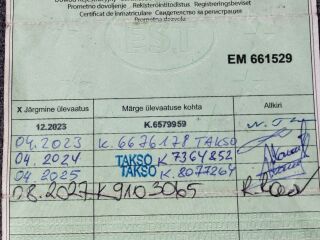 Prometno dovoljenje Rekisteröintitodistus Registreringsbeviset
Certificat de Inmatriculare Свидетелство за регистрация
Prometna dozvola
EM 661529
X Järgmine ülevaatus Märge ülevaatuse kohta Allkiri
12.2023 K.6579959
04.2023 K.6676178 TAKSO
04.2024 TAKSO K7364852
04 2025 TAKSO K.8077264
08.2027 K9103065